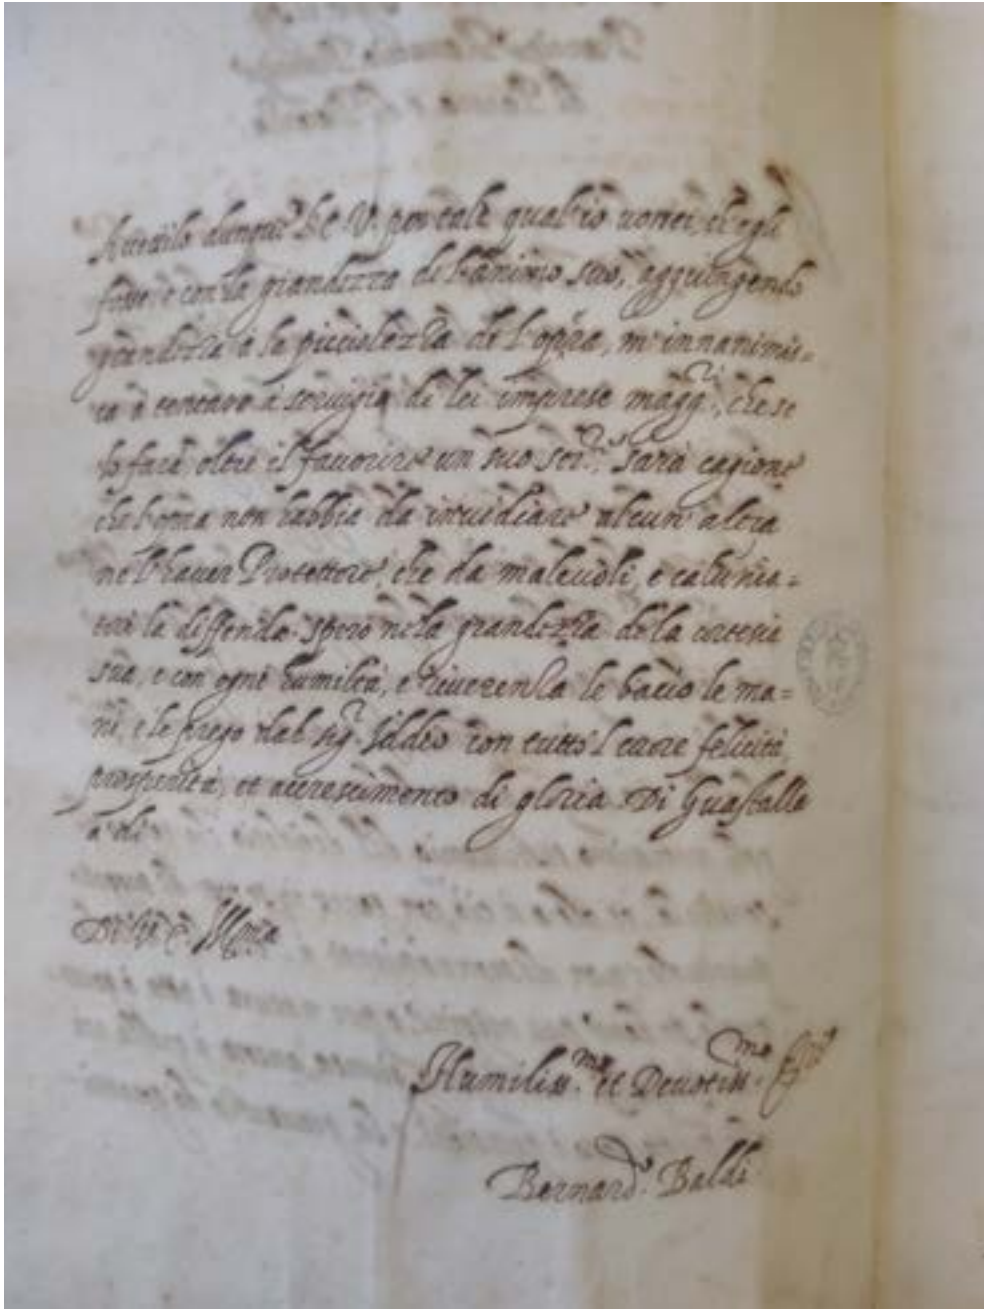 Accettilo dunque V. per tale qual'io uorrei, ch'egli
fosse, e con la grandezza de l'animo suo, aggiungendo
grandezza à la picciolezza de l'opera, m'innanimis-
ca à tentare à seruigio di lei imprese magg.ri, che se
lo farà oltre il fauorire un suo ser.re, sarà cagione
che l'opera non habbia da inuidiare alcun'altra
ne l'hauer Protettore, che da maleuoli, e calunia-
tori la diffenda. Spero ne la grandezza de la cortesia
sua, e con ogni humiltà, e riuerenza le bacio le ma-
ni, e le prego dal sig.r Iddio con tutto'l cuore felicità,
prosperità, et accrescimento di gloria. Di Guastalla
à di
Di V.
Humiliss.mo et Deuotiss.mo
Bernard.o Baldi